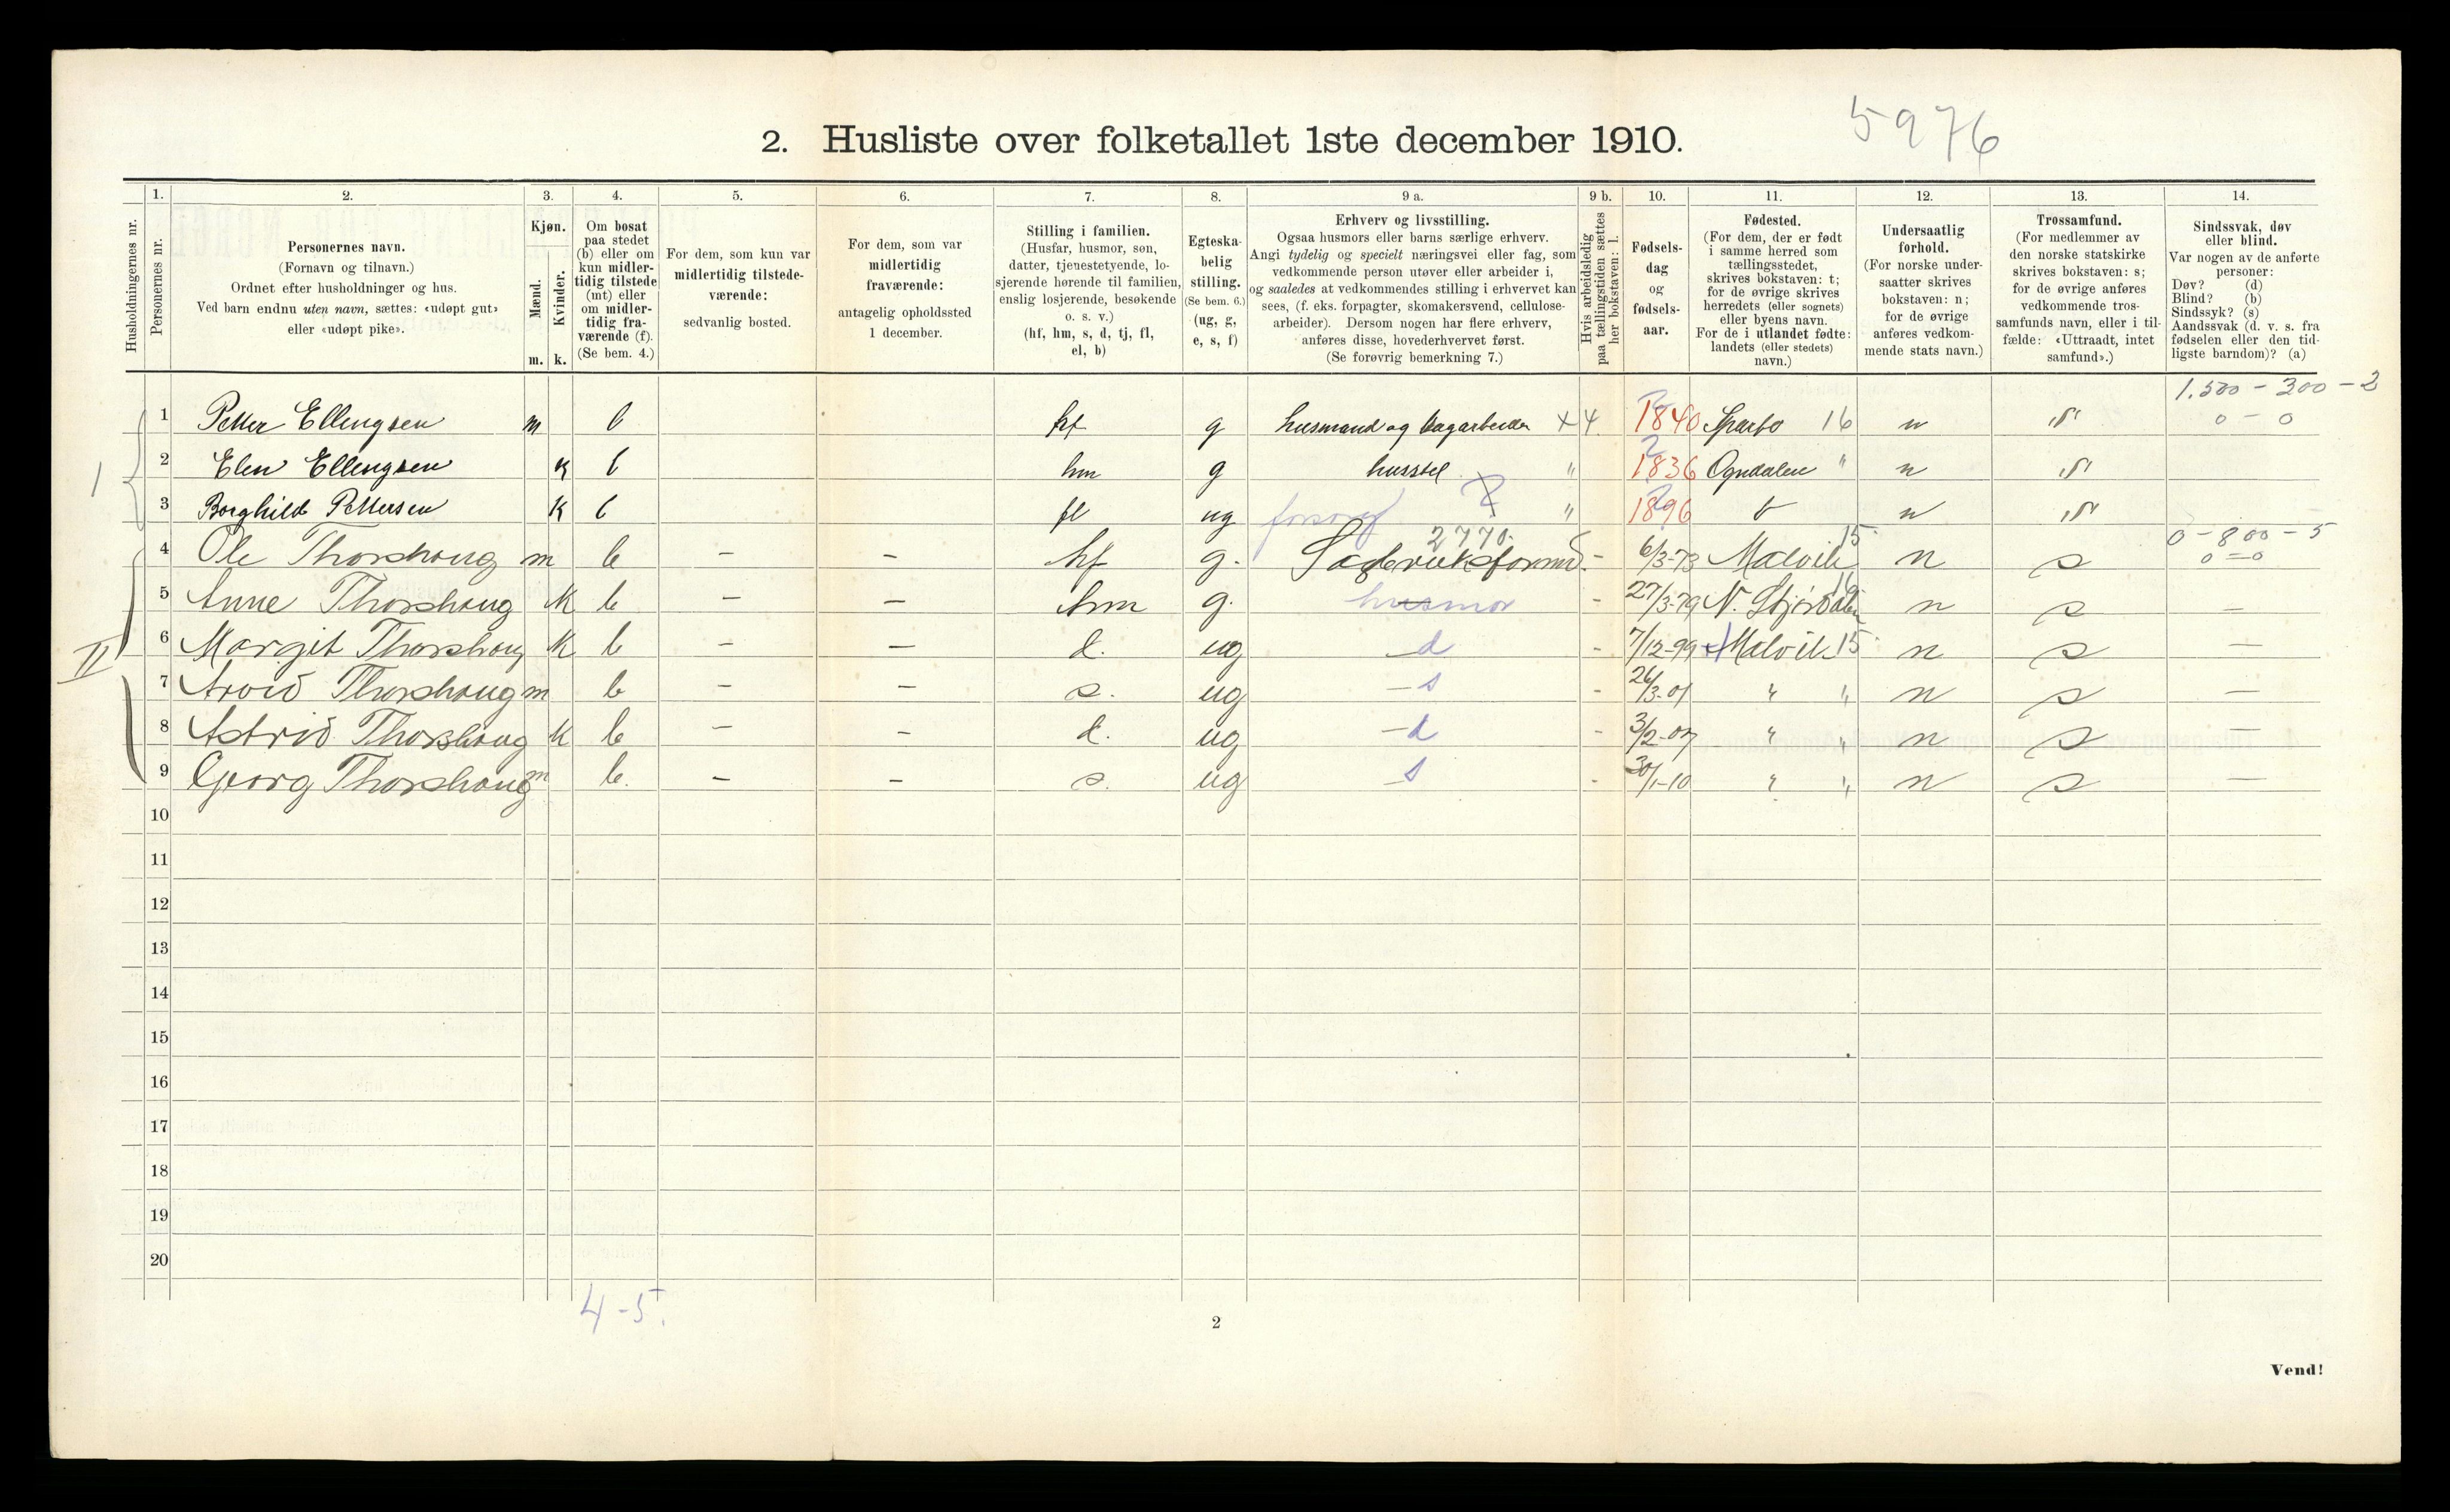 5976
2. Husliste over folketallet 1ste december 1910.
Husholdningernes nr.
1.
Personernes nr.
2.
Personernes navn.
(Fornavn og tilnavn.)
Ordnet efter husholdninger og hus.
Ved barn endnu uten navn, sættes: «udøpt gut»
eller «udøpt pike».
3.
Kjøn.
Mænd.
Kvinder.
m. k.
4.
Om bosat
paa stedet
(b) eller om
kun midler-
tidig tilstede
(mt) eller
om midler-
tidig fra-
værende (f).
(Se bem. 4.)
5.
For dem, som kun var
midlertidig tilstede-
værende:
sedvanlig bosted.
6.
For dem, som var
midlertidig
fraværende:
antagelig opholdssted
1 december.
7.
Stilling i familien.
(Husfar, husmor, søn,
datter, tjenestetyende, lo-
sjerende hørende til familien,
enslig losjerende, besøkende
o. s. v.)
(hf, hm, s, d, tj, fl,
el, b)
8.
Egteska-
belig
stilling.
(Se bem. 6.)
(ug, g,
e, s, f)
9 a.
Erhverv og livsstilling.
Ogsaa husmors eller barns særlige erhverv.
Angi tydelig og specielt næringsvei eller fag, som
vedkommende person utøver eller arbeider i,
og saaledes at vedkommendes stilling i erhvervet kan
sees, (f. eks. forpagter, skomakersvend, cellulose-
arbeider). Dersom nogen har flere erhverv,
anføres disse, hovederhvervet først.
(Se forøvrig bemerkning 7.)
9 b.
Hvis arbeidsledig
paa tællingstiden sættes
her bokstaven: l.
10.
Fødsels-
dag
og
fødsels-
aar.
11.
Fødested.
(For dem, der er født
i samme herred som
tællingsstedet,
skrives bokstaven: t;
for de øvrige skrives
herredets (eller sognets)
eller byens navn.
For de i utlandet fødte:
landets (eller stedets)
navn.)
12.
Undersaatlig
forhold.
(For norske under-
saatter skrives
bokstaven: n;
for de øvrige
anføres vedkom-
mende stats navn.)
13.
Trossamfund.
(For medlemmer av
den norske statskirke
skrives bokstaven: s;
for de øvrige anføres
vedkommende tros-
samfunds navn, eller i til-
fælde: «Uttraadt, intet
samfund».)
14.
Sindssvak, døv
eller blind.
Var nogen av de anførte
personer:
Døv? (d)
Blind? (b)
Sindssyk? (s)
Aandssvak (d. v. s. fra
fødselen eller den tid-
ligste barndom)? (a)
1.500 - 300 - 2
1 Petter Ellingsen m b hf g husmand og dagarbeider × 4 1840 Sparbo 16 n "s" 0 - 0
I
2 Elen Ellingsen k b hm g husstel " 1836 Ogndalen " n "s"
3 Borghild Pettersen k b fl ug forsørg " 1896 t n "s"
2770. 15 0 - 800 - 5
4 Ole Thorshaug m b - - hf g. Sagbruksformd. - 6/3-73 Malvik n s 0 = 0
5 Anne Thorshaug k b - - hm g. husmor - 27/3-79 N. Stjørdalen 16 n s -
II
6 Margit Thorshaug k b - - d. ug - d - 7/12-99 Malvik 15 n s -
7 Arvid Thorshaug m b - - s. ug - s - 26/3-01 " " n s -
8 Astrid Thorshaug k b - - d. ug - d - 3/2-07 " " n s -
9 Georg Thorshaug m b. - - s. ug - s - 30/1-10 " " n s -
10
11
12
13
14
15
16
17
18
19
20
4 - 5.
2
Vend!